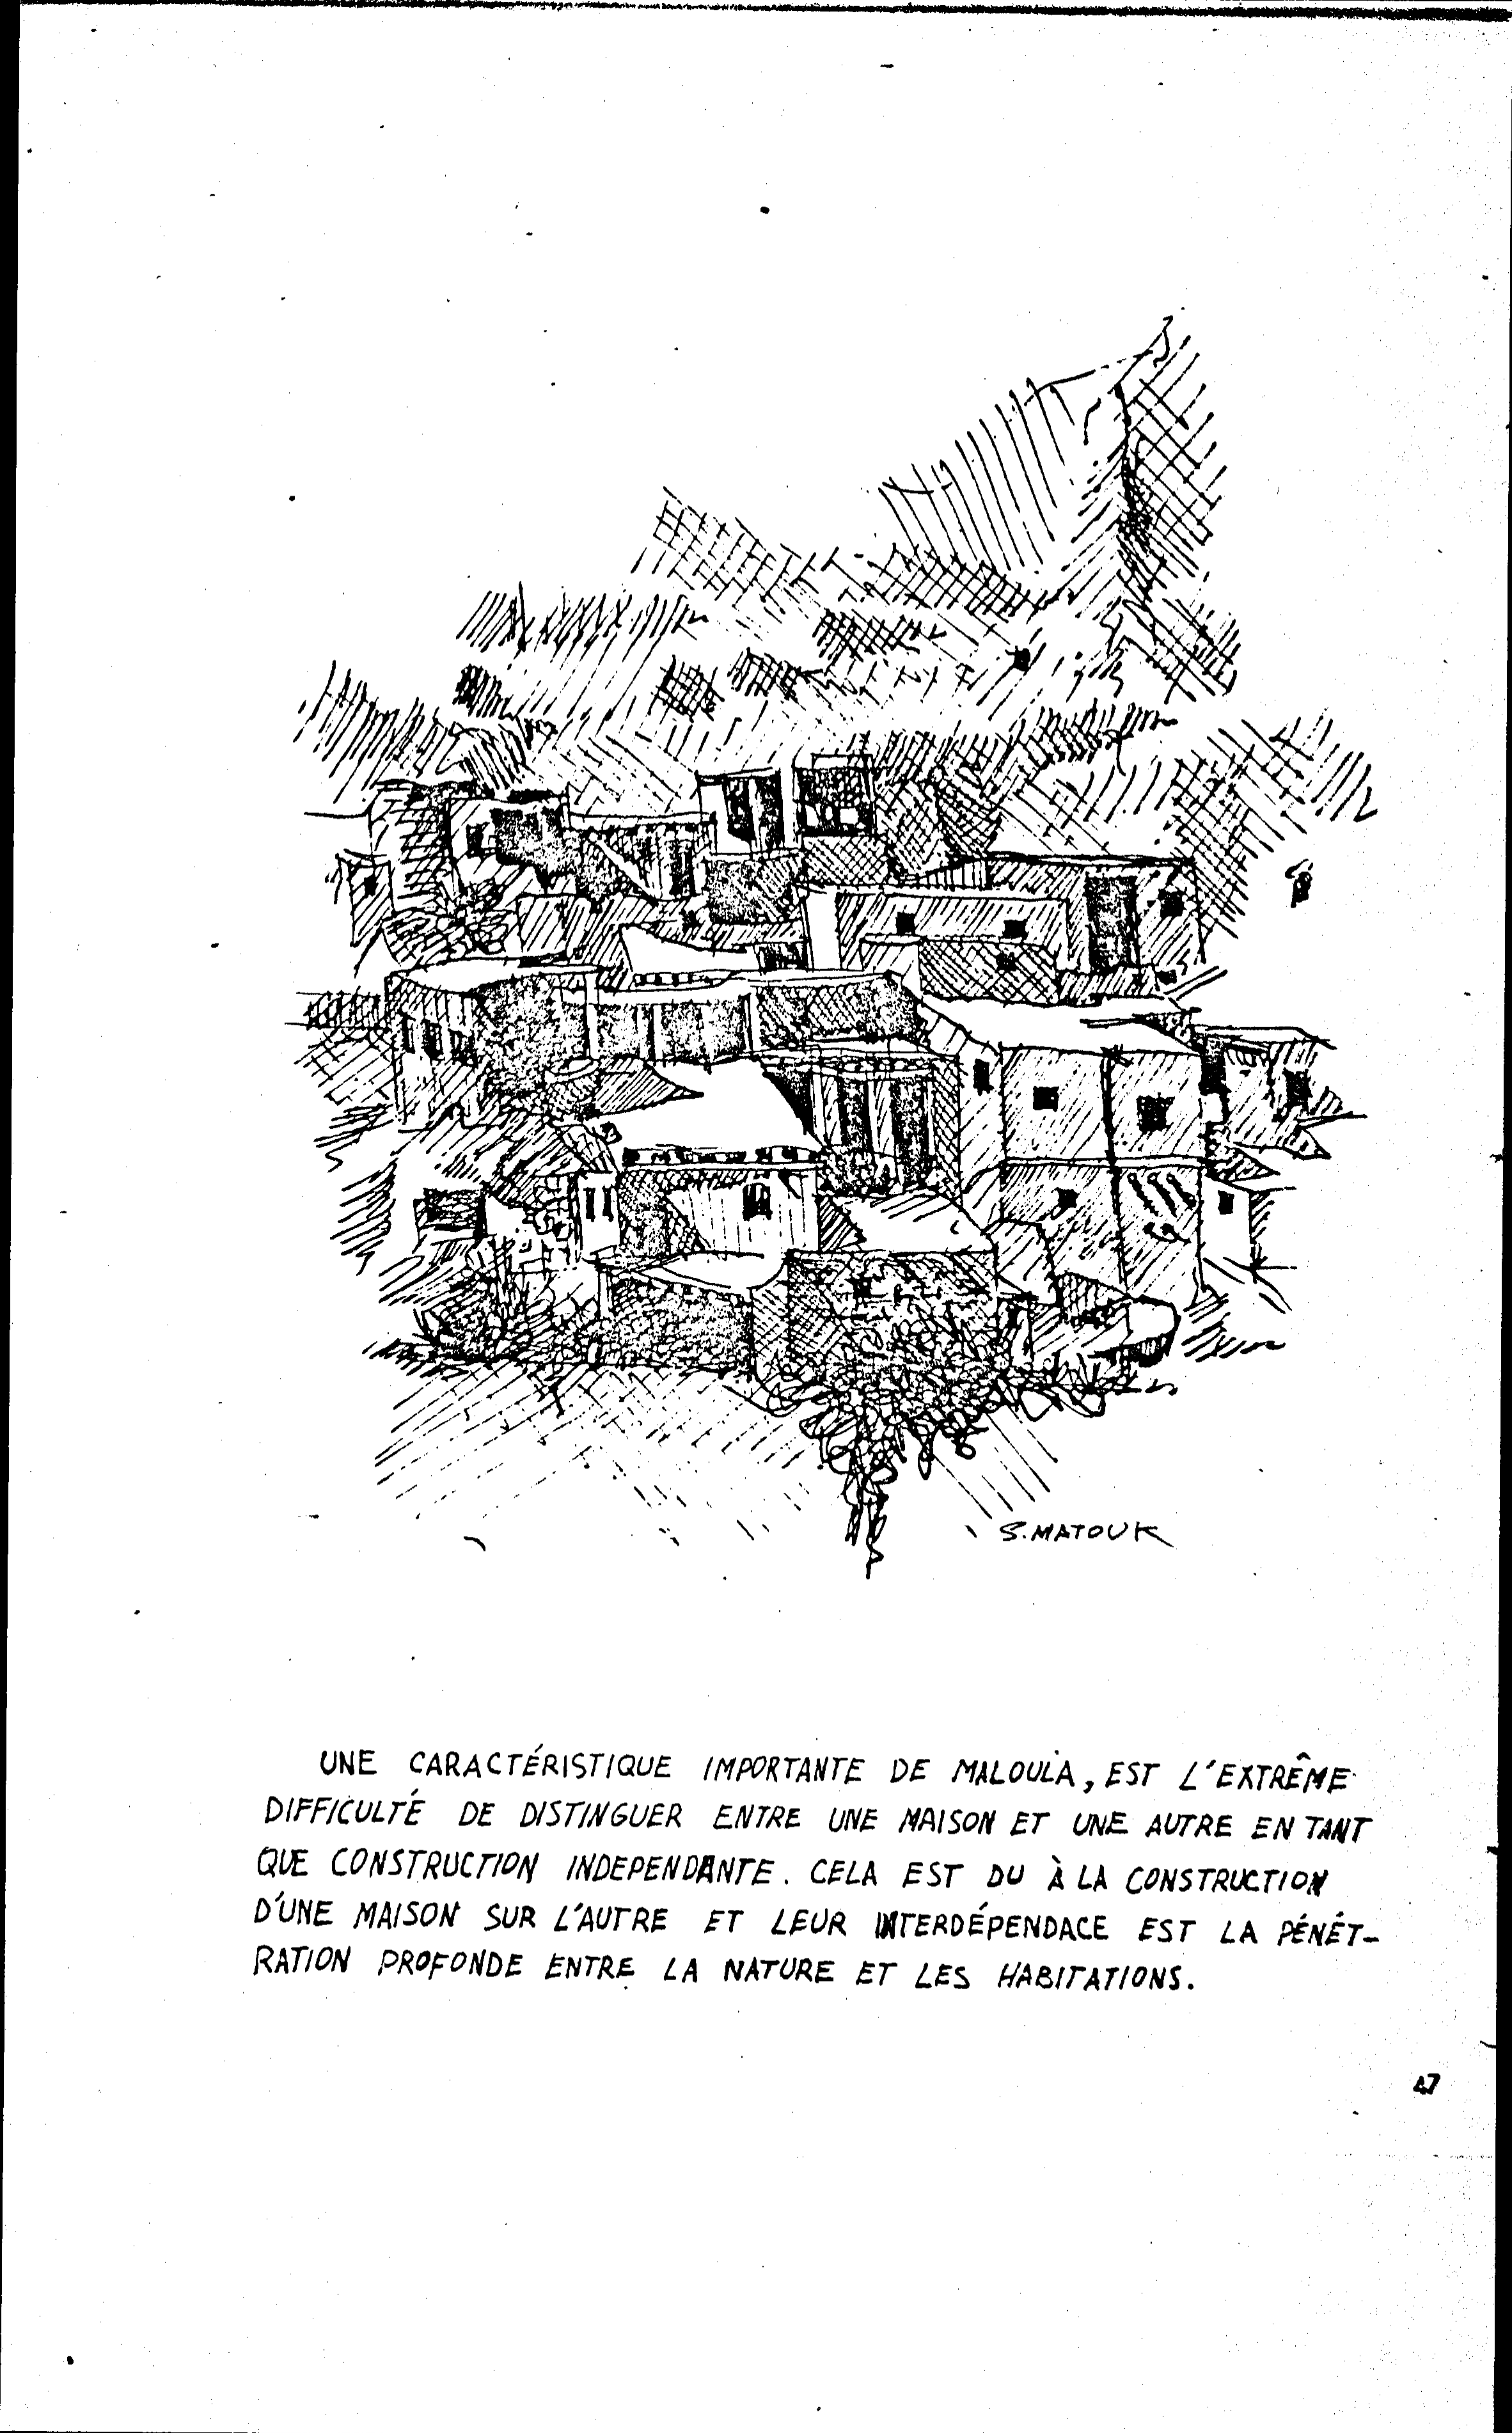 S. MATOUK
UNE CARACTÉRISTIQUE IMPORTANTE DE MALOULA, EST L'EXTRÊME
DIFFICULTÉ DE DISTINGUER ENTRE UNE MAISON ET UNE AUTRE EN TANT
QUE CONSTRUCTION INDEPENDANTE. CELA EST DU À LA CONSTRUCTION
D'UNE MAISON SUR L'AUTRE ET LEUR INTERDÉPENDACE EST LA PÉNÉT-
RATION PROFONDE ENTRE LA NATURE ET LES HABITATIONS.
47